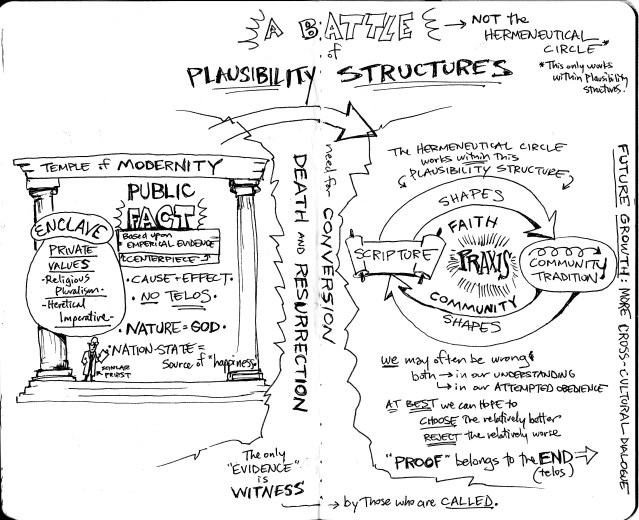 A BATTLE
of
PLAUSIBILITY STRUCTURES
→ NOT the
HERMENEUTICAL
CIRCLE*
*This only works
within Plausibility
Structures.
TEMPLE of MODERNITY
PUBLIC
FACT
Based upon
EMPERICAL EVIDENCE
"CENTERPIECE"
• CAUSE + EFFECT •
• NO TELOS •
• NATURE = GOD •
• NATION-STATE =
Source of "happiness"
ENCLAVE
PRIVATE
VALUES
-Religious
Pluralism-
-Heretical
Imperative-
SCHOLAR
PRIEST
DEATH AND RESURRECTION
need for CONVERSION
The only
"EVIDENCE"
is
WITNESS
→ by Those who are CALLED.
The HERMENEUTICAL CIRCLE
works within This
PLAUSIBILITY STRUCTURE
SHAPES
FAITH
SCRIPTURE
PRAXIS
COMMUNITY
TRADITION
COMMUNITY
SHAPES
we may often be wrong
both → in our UNDERSTANDING
↳ in our ATTEMPTED OBEDIENCE
AT BEST we can HOPE to
CHOOSE the relatively better
REJECT the relatively worse
"PROOF" belongs to the END ⇒
(telos)
FUTURE GROWTH: MORE CROSS-CULTURAL DIALOGUE